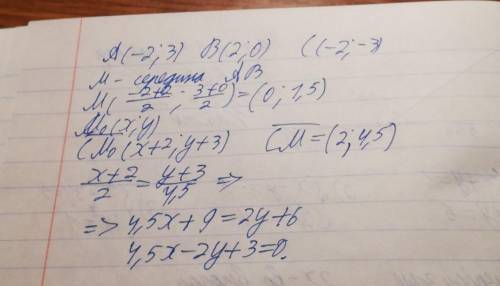 A(-2;3) B(2;0) C(-2;-3)
M - середина AB
M(-2+2/2 ; 3+0/2) = (0; 1,5)
M₀(x;y)
CM₀(x+2; y+3) CM = (2; 4,5)
x+2/2 = y+3/4,5 =>
=> 4,5x + 9 = 2y + 6
4,5x - 2y + 3 = 0.